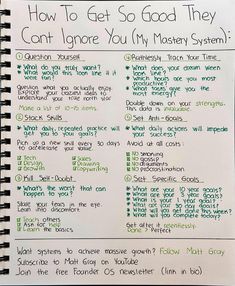 How To Get So Good They
Cant Ignore You (My Mastery System):
① Question Yourself
* What do you truly want?
* What would this look like if it were fun?
Question what you actually enjoy
Explore your easiest ideas to
understand your true north star
Make a list of 10-15 items.
② Stack Skills
* What daily, repeated practice will
get you to your goals?
Pick up a new skill every 30 days
to accelerate your value.
Tech
Design
Growth
Sales
Drawing
Copywriting
③ Kill Self-Doubt
* What's the worst that can
happen to you?
Stare your fears in the eye.
Lean into discomfort.
Teach others
Ask for help
Learn the basics
④ Ruthlessly Track Your Time
* What does your dream week
look like?
* Which hours are you most
productive?
* What tasks give you the
most energy?
Double down on your strengths.
This data is invaluable.
⑤ Set Anti-Goals
* What daily actions will impede
your success?
Avoid at all costs:
No snoozing
No gossip
No arguments
No procrastination
⑥ Set Specific Goals
* What are your 10 year goals?
* What are your 3 year goals?
* What is your 1 year goal?
* What are your 90 day goals?
* What will you get done this week?
* What will you complete today?
Get after it relentlessly.
Done > Perfect
Want systems to achieve massive growth? Follow Matt Gray
Subscribe to Matt Gray on YouTube
Join the free Founder OS newsletter (link in bio)